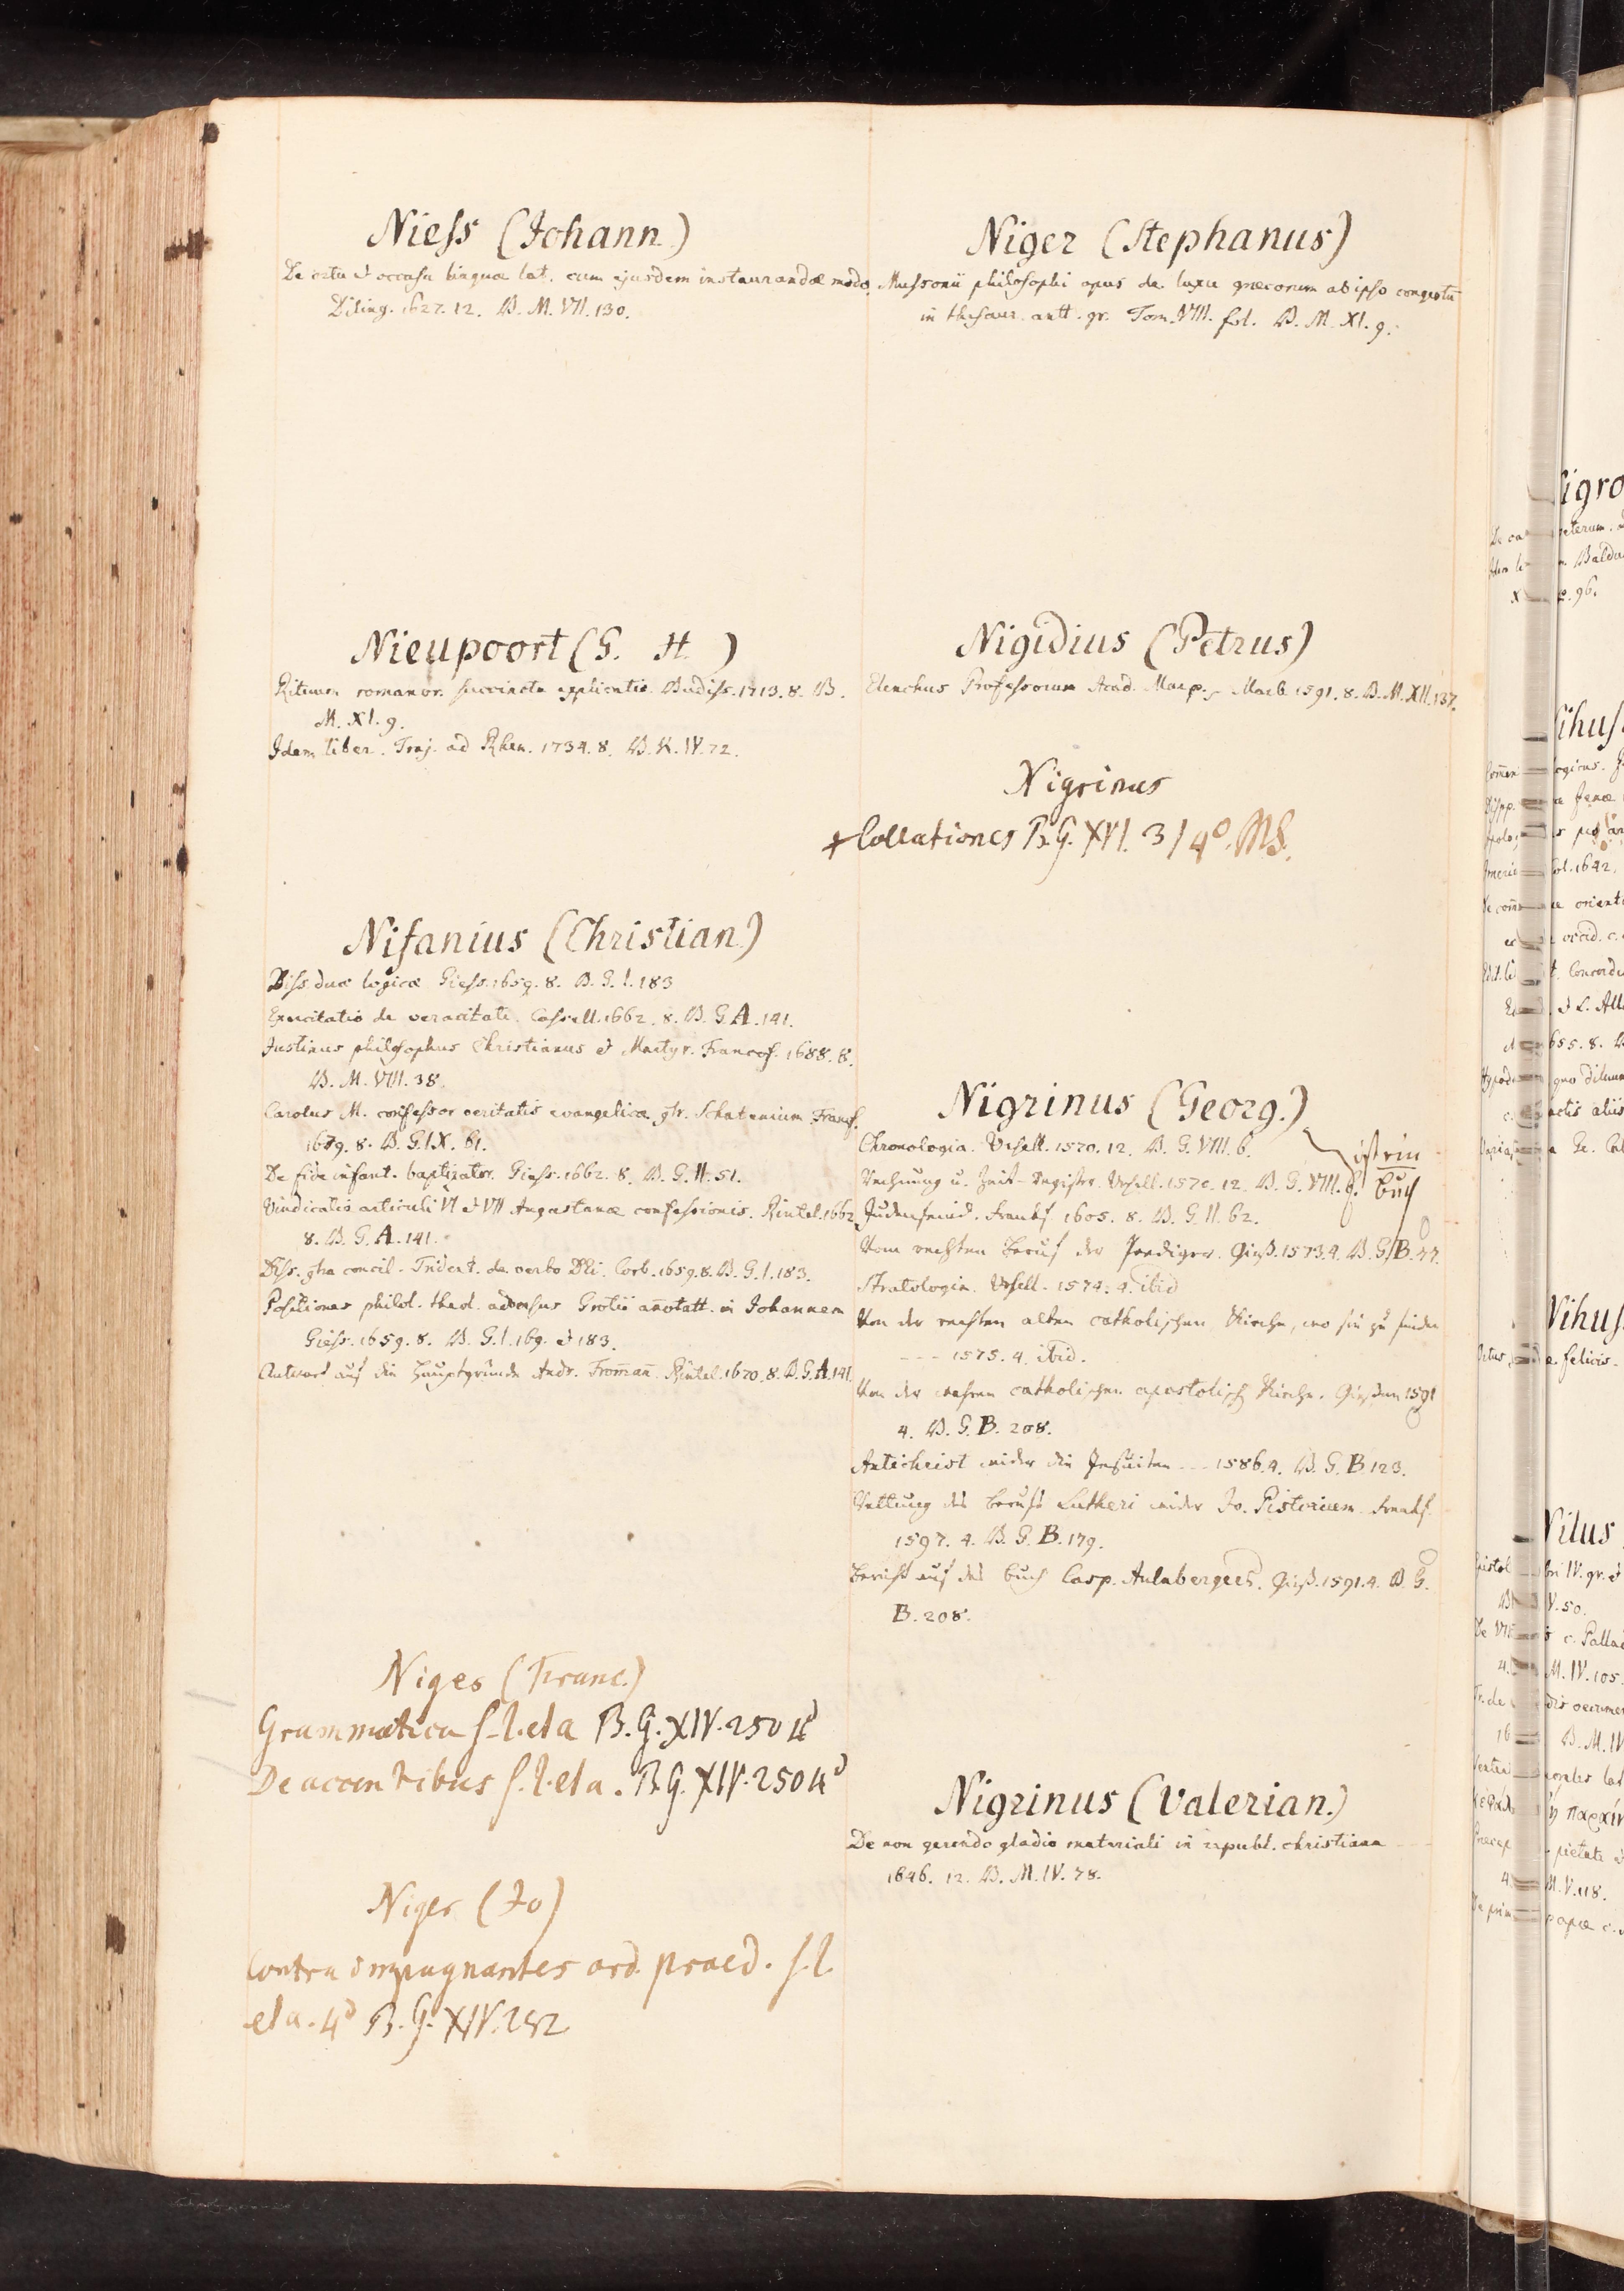 Niess (Johann)
De ortu et occasu linguæ lat. cum ejusdem instaurandæ modo.
Diling. 1627. 12. B. M. VII. 130.
Nieupoort (G. H.)
Rituum romanor. succincta explicatio. Budiss. 1713. 8. B.
M. XI. 9.
Idem liber. Traj. ad Rhen. 1734. 8. B. K. IV. 72.
Nifanius (Christian)
Diss. duæ logicæ Giess. 1659. 8. B. G. I. 183
Exercitatio de veracitate. Cassell. 1662. 8. B. G. A. 141.
Justinus philosophus Christianus et Martyr. Francof. 1688. 8.
B. M. VIII. 38.
Carolus M. confessor veritatis evangelicæ gtr. Schatenium Francf.
1679. 8. B. G. IX. 61.
De fide infant. baptizator. Giess. 1662. 8. B. G. II. 51.
Vindicatio articuli VI et VII Augustanæ confessionis. Rintel. 1662
8. B. G. A. 141.
Diss. gtra concil. Trident. de verbo DEi. Corb. 1659. 8. B. G. I. 183.
Positiones philol. theol. adversus Grotii añotatt. in Johannem
Giess. 1659. 8. B. G. I. 169. et 183.
Antwort auf die Hauptgründe Andr. From̄añ. Rintel. 1670. 8. B. G. A. 141.
Niger (Franc.)
Grammatica s. l. et a B. G. XIV. 250 4º
De accentibus s. l. et a. B. G. XIV. 250 4º
Niger (Jo)
Contra impugnantes ord. praed. s. l.
et a. 4º B. G. XIV. 252
Niger (Stephanus)
Mussonii philosophi opus de luxu græcorum ab ipso congestū
in thesaur. antt. gr. Tom. VIII. fol. B. M. XI. 9.
Nigidius (Petrus)
Elenchus Professorum Acad. Marp. Marb. 1591. 8. B. M. XII. 137.
Nigrinus
+ Collationes B. G. XVI. 31 4º. MS.
Nigrinus (Georg.)
Chronologia. Ursell. 1570. 12. B. G. VIII. 6.
ist ein
Buch
Rechnung u. Zeit-Register. Ursell. 1570. 12. B. G. VIII. 6.
Judenfeind. Frankf. 1605. 8. B. G. II. 62.
Vom rechten Beruf der Prediger. Gieß. 1573. 4. B. G. B. 44.
Stratologia. Ursell. 1574. 4. ibid
Von der rechten alten catholischen Kirche, wo sie zu finden
--- 1575. 4. ibid.
Von der wahren catholischen apostolisch Kirche. Giessen 1591
4. B. G. B. 208.
Antichrist wider die Jesuiten --- 1586. 4. B. G. B. 123.
Rettung des Berufs Lutheri wider Jo. Pistorium. Frankf.
1597. 4. B. G. B. 179.
Bericht auf das Buch Casp. Aulabergers. Gieß. 1591. 4. B. G.
B. 208.
Nigrinus (Valerian.)
De non gerendo gladio materiali in republ. christiana
1646. 12. B. M. IV. 78.
igro
eterum.
Baldu
96.
ihus
ogicus.
Jenæ
fol. 1642.
orient
Concord
655. 8.
Nihus
felicis.
Nilus
bri IV. gr. et
IV. 50.
c. Pallad
M. IV. 105.
B. M. IV
pietate
M. V. 118.